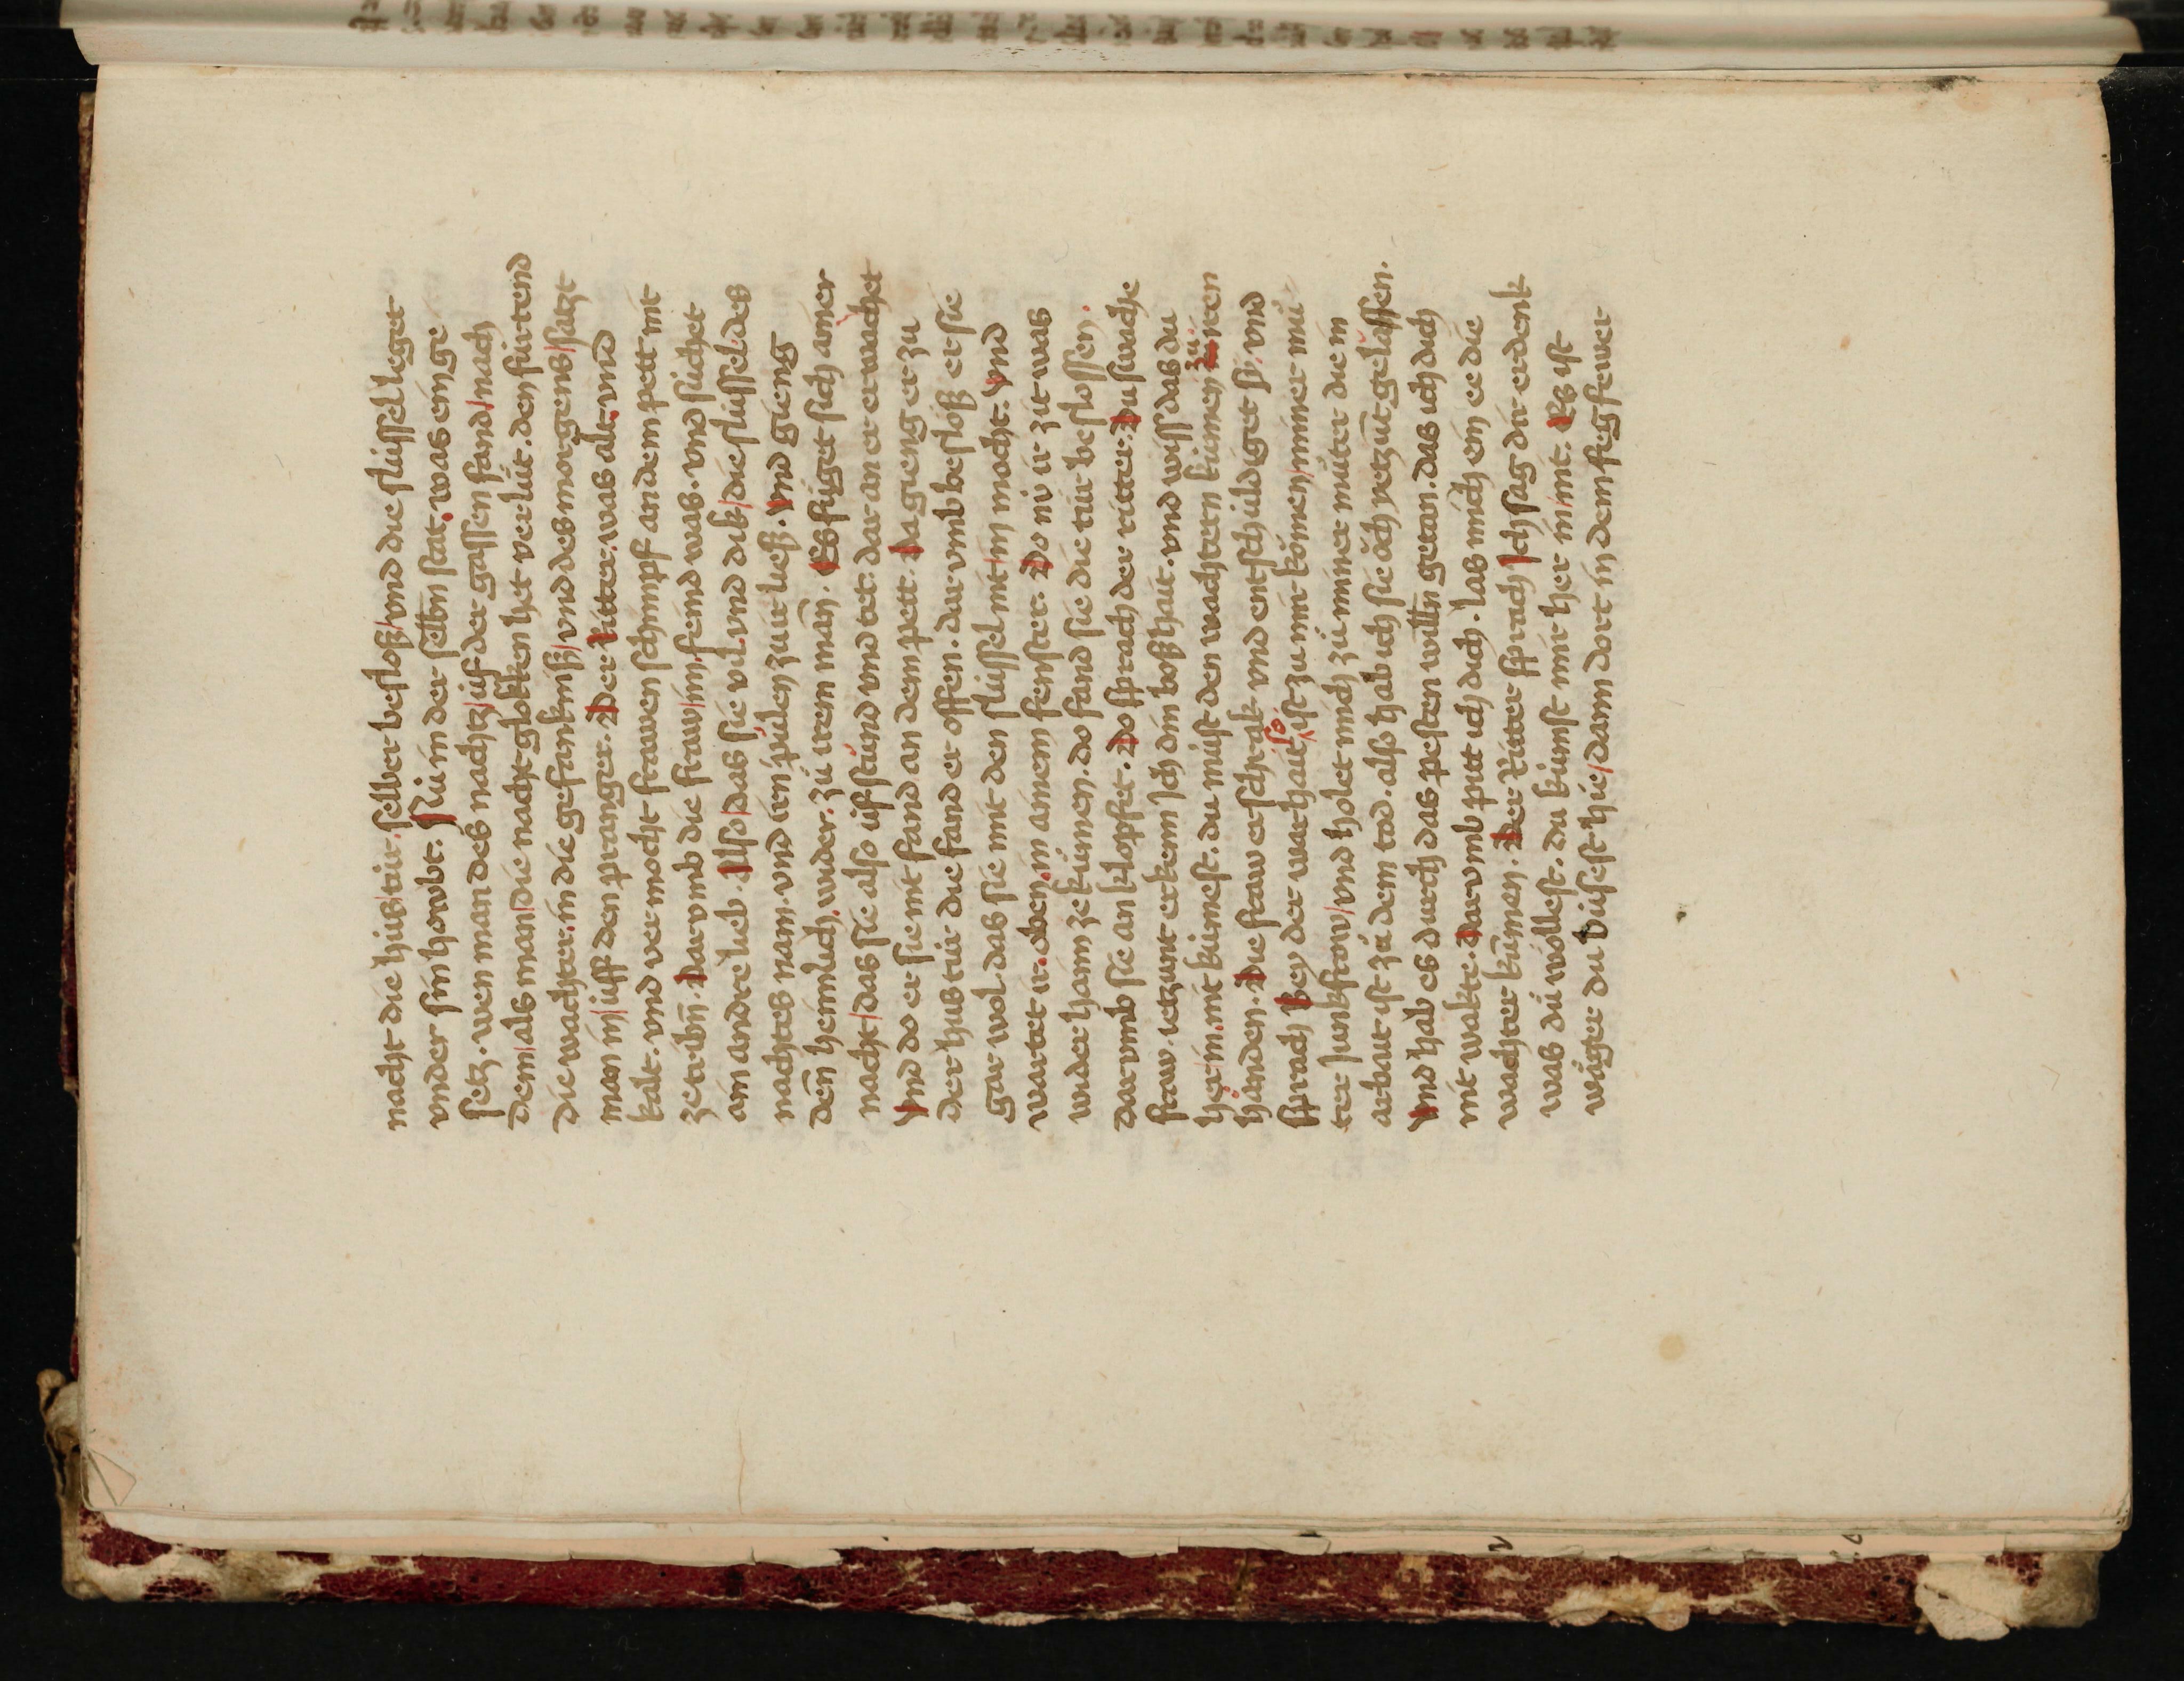 nacht die hustür. selber besloß/vnd die slüssel leget
vnder sin howbt. Nu in der selbn stat. was ein ge
setz. wen man des nachtz/uf der gassen fand/nach
dem/als man/die nacht glokken het verlüt. den fürtend
die wachter. in die gefanknüß/vnd des morgens/satzt
man in/uff den pranger. Der Ritter. was alt. vnd
kalt. vnd vermocht frawen schimpf an dem pett nit
zetribn. Darvmb die fraw/im feind was. vnd süchet
ain andre lieb. Also/das sie vil. vnd dik/die slüssel des
nachtes nam. vnd irn pülen zuir ließ. Vnd gieng
denn heimlich. wider. zü irem man. Es füget sich ainer
nacht/das sie also ufstünd vnd tet. dar an er erwachet
Vnd do er sie nit fand an dem pett. Da gieng er zu
der hustür die fand er offen. dar vmb besloß er sie
gar wol. das sie mit den slüssel nit/in macht. Vnd
wartet ir. oben. in ainem fenster. Do nv ir zit was
wider haim zekümen. do fand sie die tür beslossen.
darvmb sie an klopfet. Do sprach der ritter. Du swache
fraw. ietzunt erkenn Ich din boßhait. vnd wiss das du
her in. nit kümest. du müst den wachtern kümen zu iren
handen. Die fraw erschrak vnd entschuldiget si. vnd
sprach Bey der warhait so ist zu mir kömen/miner mü
ter Junkfraw/vnd holet mich zü miner müter die in
arbait ist zü dem tod. also hab ich sie och yetzunt gelassen.
Vnd hab es durch das pesten willn getan. das ich dich
nit wakte. Darvmb pitt ich dich. las mich ein ee die
wachter kümen. Der Ritter sprach Ich sag dir erdenk
was du wöllest. du kümst mir her in/nit. Es ist
wäger du büsest hie/dann dort in dem fegfewer